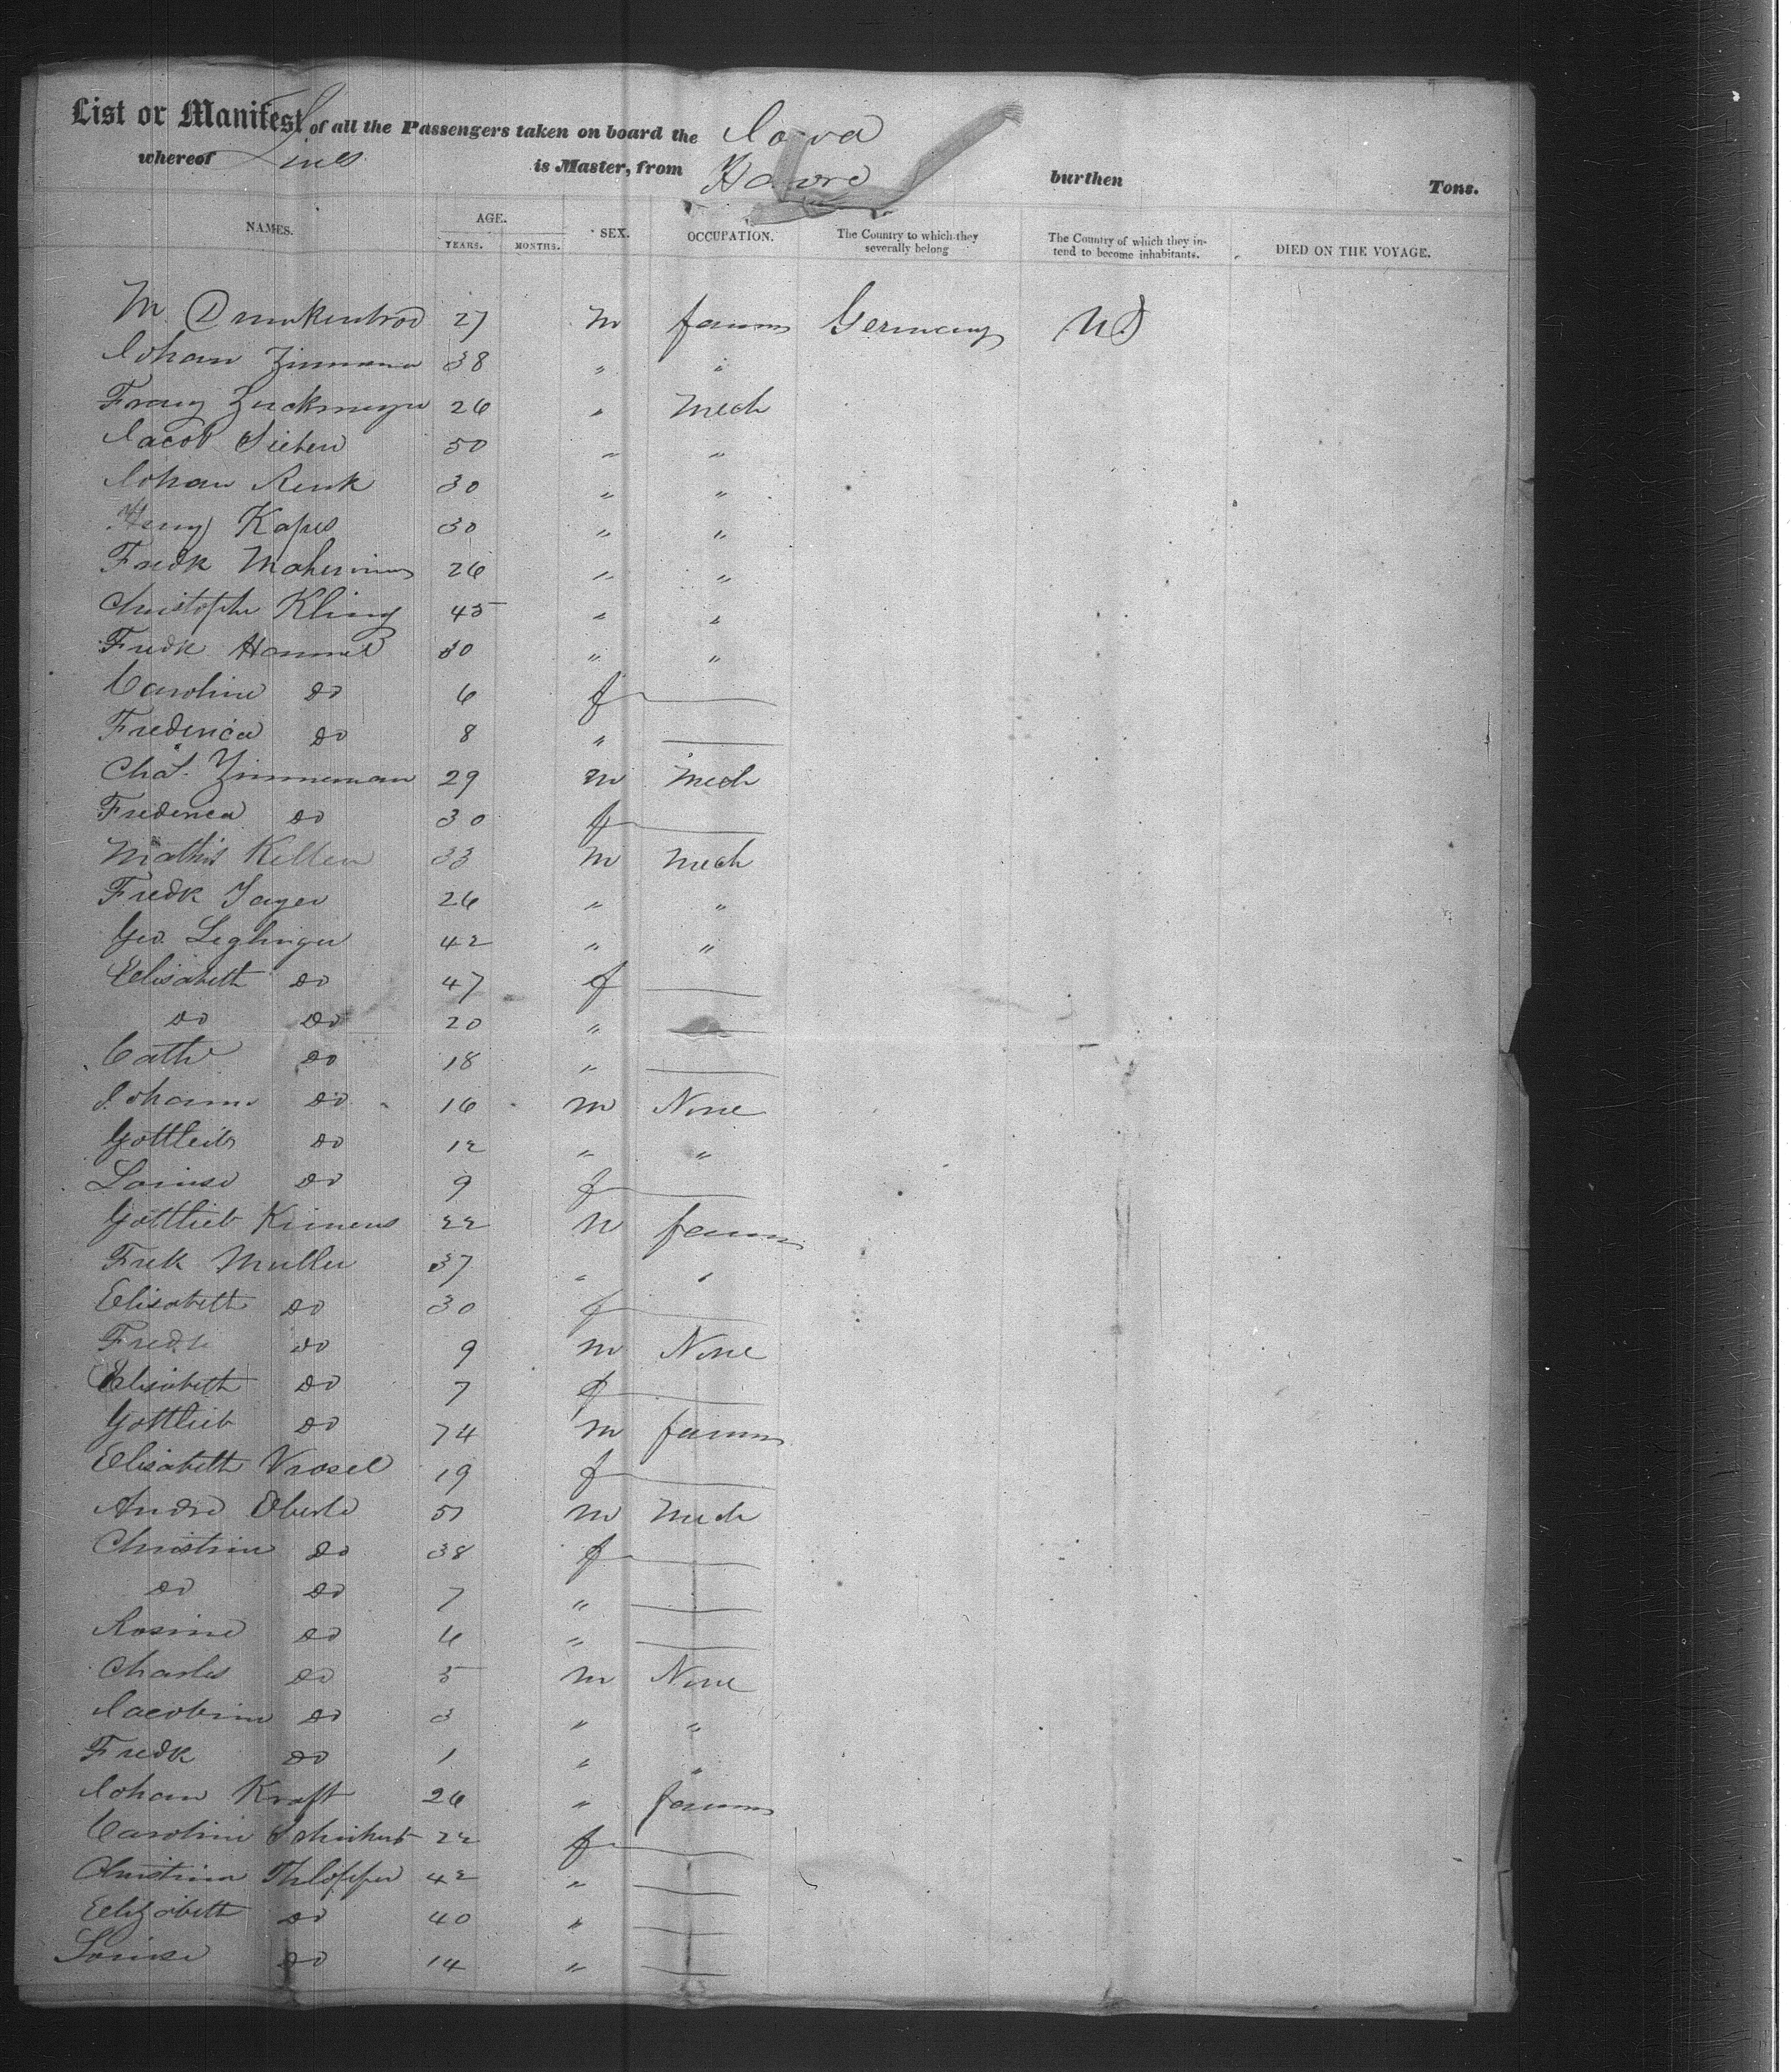 List or Manifest of all the Passengers taken on board the Iowa
whereof Lines is Master, from Havre burthen Tons.
NAMES. AGE. YEARS. MONTHS. SEX. OCCUPATION. The Country to which they severally belong The Country of which they intend to become inhabitants. DIED ON THE VOYAGE.
M 27 m farmer Germany US
Johan 38 " "
Franz Zuckmeyer 26 " Mech
Jacob Sieben 50 " "
Johan Renk 30 " "
Henry Kapes 30 " "
Fredk 26 " "
Christophe Kling 45 " "
Fredk Hammel 30 " "
Caroline do 6 f
Frederica do 8 "
Chas. Zimmerman 29 m Mech
Frederica do 30 f
Mathis Keller 33 m Mech
Fredk Jager 26 " "
Geo. Leglinger 42 " "
Elisabeth do 47 f
do do 20 "
Cathe do 18 "
Johann do 16 m None
Gottleib do 12 " "
Louise do 9 f
Gottlieb 22 m farmer
Frek Muller 37 " "
Elisabeth do 30 f
Fredk do 9 m None
Elisabeth do 7 f
Gottlieb do 74 m farmer
Elisabeth Vrosel 19 f
Andre Eberle 51 m Mech
Christine do 38 f
do do 7 "
Rosine do 6 "
Charles do 5 m None
Jacobine do 3 " "
Fredk do 1 " "
Johan Kraft 26 " farmer
Caroline 22 f
Christina 42 "
Elizabeth do 40 "
Louise do 14 "